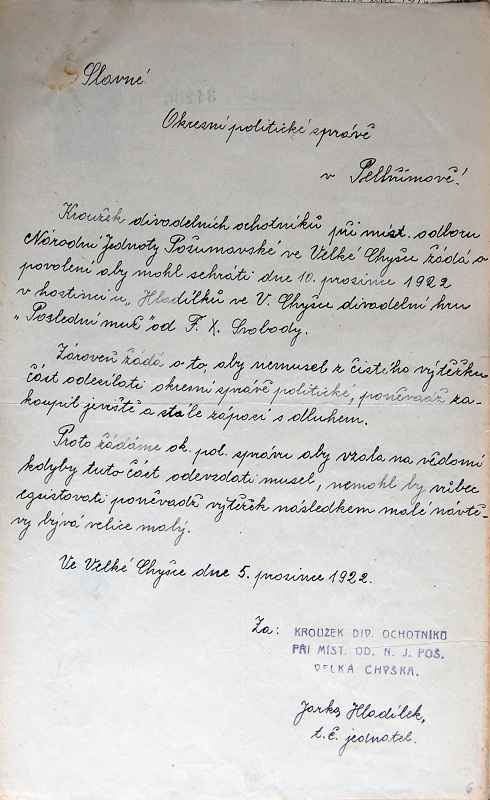 Slavné
Okresní politické správě
v Pelhřimově!
Kroužek divadelních ochotníků při míst. odboru
Národní Jednoty Pošumavské ve Velké Chyšce žádá o
povolení aby mohl sehráti dne 10. prosince 1922
v hostinci u „Hladílků ve V. Chyšce divadelní hru
„Poslední muž" od F. X. Svobody.
Zároveň žádá o to, aby nemusel z čistého výtěžku
část odesílati okresní správě politické, poněvadž za-
koupil jeviště a stále zápasí s dluhem.
Proto žádáme ok. pol. správu aby vzala na vědomí
kdyby tuto část odevzdati musel, nemohl by vůbec
egsistovati poněvadž výtěžek následkem malé návště-
vy bývá velice malý.
Ve Velké Chyšce dne 5. prosince 1922.
Za: KROUŽEK DIV. OCHOTNÍKŮ
PŘI MÍST. OD. N. J. POŠ.
VELKÁ CHYŠKA.
Jarka Hladílek,
t. č. jednatel.
6